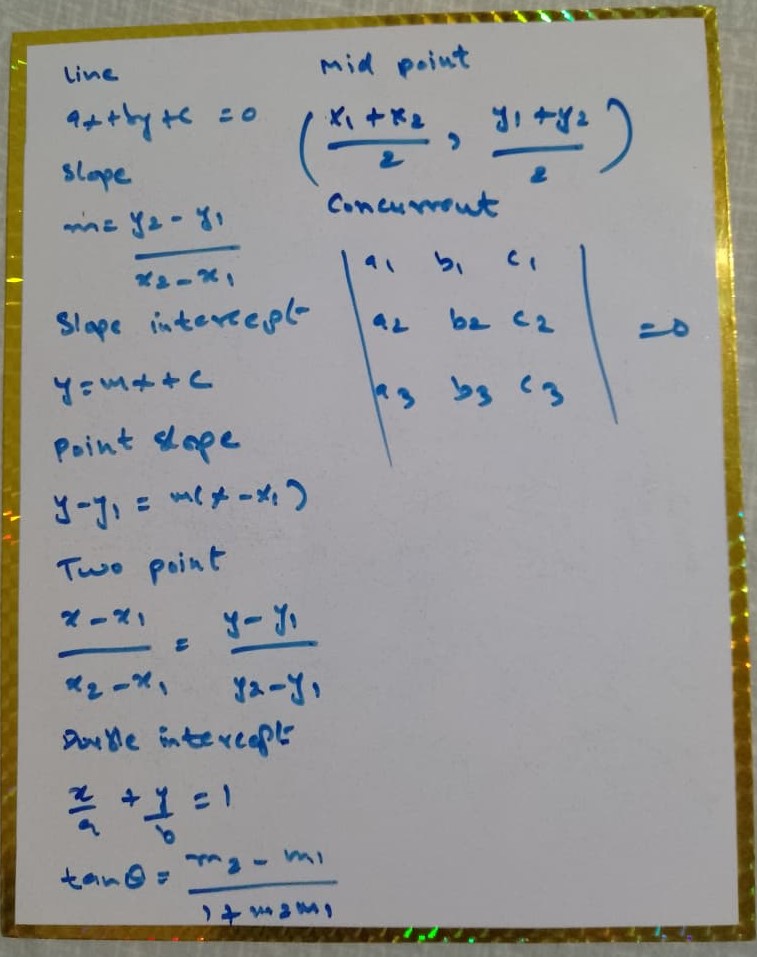 Line
ax+by+c =0
Slope
m= y2-y1
x2-x1
Slope intercept
y=mx+c
Point slope
y-y1 = m(x-x1)
Two point
x-x1 = y-y1
x2-x1 y2-y1
Double intercept
x/a + y/b =1
tanθ= m2-m1
1+m2m1
Mid point
(x1+x2 , y1+y2)
2 2
Concurrent
a1 b1 c1
a2 b2 c2 =0
a3 b3 c3